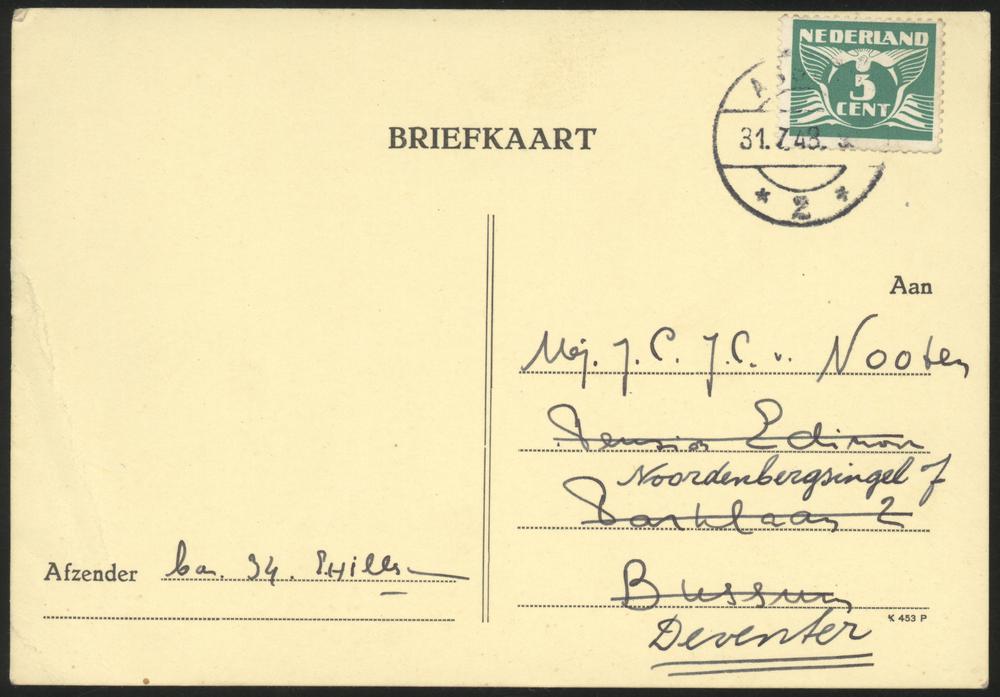 NEDERLAND
5
CENT
31.7.48.
* 2 *
BRIEFKAART
Aan
Mej. J. C. J. C. v. Nooten
Pension
Noordenbergsingel 7
Parklaan 2
Bussum
Deventer
Afzender
K 453 P